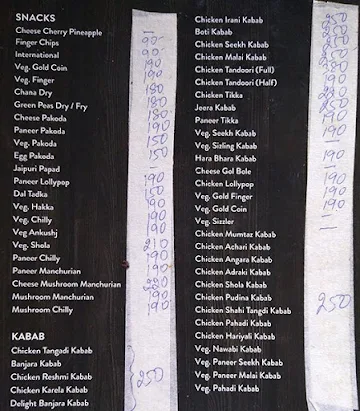 SNACKS
Cheese Cherry Pineapple —
Finger Chips 90
International 90
Veg. Gold Coin 190
Veg. Finger 190
Chana Dry 180
Green Peas Dry / Fry 180
Cheese Pakoda 180
Paneer Pakoda 190
Veg. Pakoda 150
Egg Pakoda 150
Jaipuri Papad
Paneer Lollypop 190
Dal Tadka 150
Veg. Hakka 190
Veg. Chilly 190
Veg Ankushj 190
Veg. Shola 210
Paneer Chilly 190
Paneer Manchurian 190
Cheese Mushroom Manchurian
Mushroom Manchurian 190
Mushroom Chilly 190
KABAB
Chicken Tangadi Kabab
Banjara Kabab
Chicken Reshmi Kabab 250
Chicken Karela Kabab
Delight Banjara Kabab
Chicken Irani Kabab 250
Boti Kabab 250
Chicken Seekh Kabab 250
Chicken Malai Kabab 250
Chicken Tandoori (Full)
Chicken Tandoori (Half) 190
Chicken Tikka
Jeera Kabab 250
Paneer Tikka 190
Veg. Seekh Kabab 190
Veg. Sizling Kabab —
Hara Bhara Kabab 190
Cheese Gol Bole —
Chicken Lollypop 190
Veg. Gold Finger 190
Veg. Gold Coin 190
Veg. Sizzler —
Chicken Mumtaz Kabab —
Chicken Achari Kabab
Chicken Angara Kabab
Chicken Adraki Kabab
Chicken Shola Kabab
Chicken Pudina Kabab 250
Chicken Shahi Tangdi Kabab
Chicken Pahadi Kabab
Chicken Hariyali Kabab
Veg. Nawabi Kabab
Veg. Paneer Seekh Kabab
Veg. Paneer Malai Kabab
Veg. Pahadi Kabab